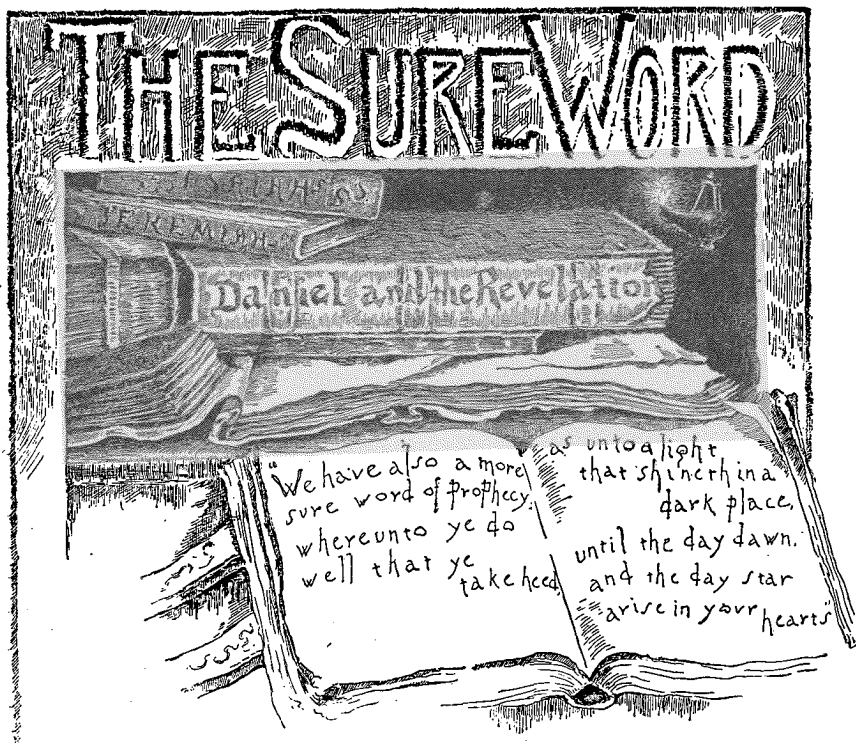 THE SURE WORD
JEREMIAH
Daniel and the Revelation
"We have also a more
sure word of Prophecy,
whereunto ye do
well that ye
take heed,
as unto a light
that shineth in a
dark place,
until the day dawn,
and the day star
arise in your
hearts"